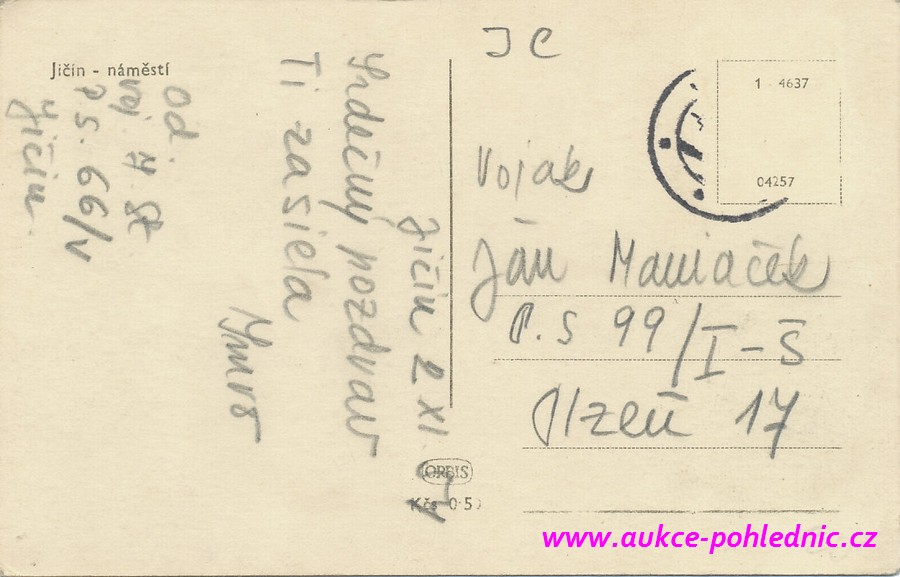 Jičín - náměstí
J C
1 4637
04257
Jičín 2 XI
Srdečný pozdrav
Ti zasiela
Imro
Od:
voj.
P.S. 66/V
Jičín
Vojak
Ján
P.S 99/I-Š
Plzeň 17
ORBIS
Kčs 0·50
www.aukce-pohlednic.cz